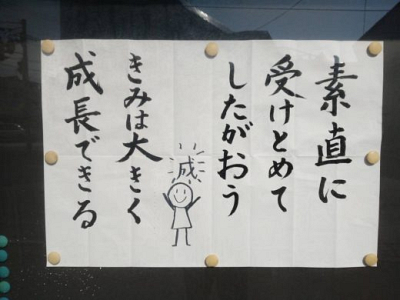 素直に
受けとめて
したがおう
成
きみは大きく
成長できる